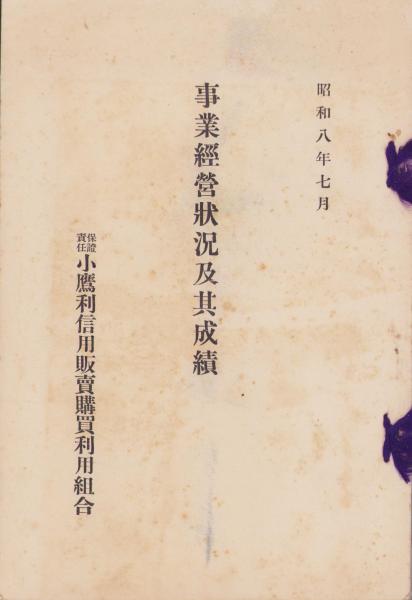 昭和八年七月
事業經營狀況及其成績
保證責任小鷹利信用販賣購買利用組合